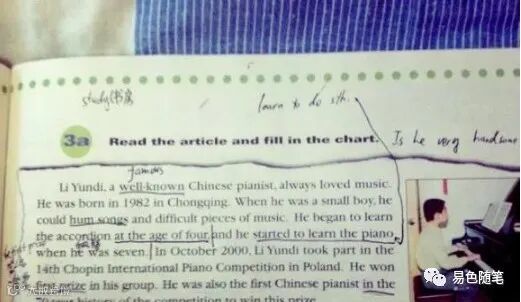 study(书房
learn to do sth.
3a Read the article and fill in the chart. Is he very handsome
famous
Li Yundi, a well-known Chinese pianist, always loved music.
He was born in 1982 in Chongqing. When he was a small boy, he
could hum songs and difficult pieces of music. He began to learn
the accordion at the age of four, and he started to learn the piano
when he was seven. In October 2000, Li Yundi took part in the
14th Chopin International Piano Competition in Poland. He won
prize in his group. He was also the first Chinese pianist in the
history of the competition to win this prize.
易色随笔